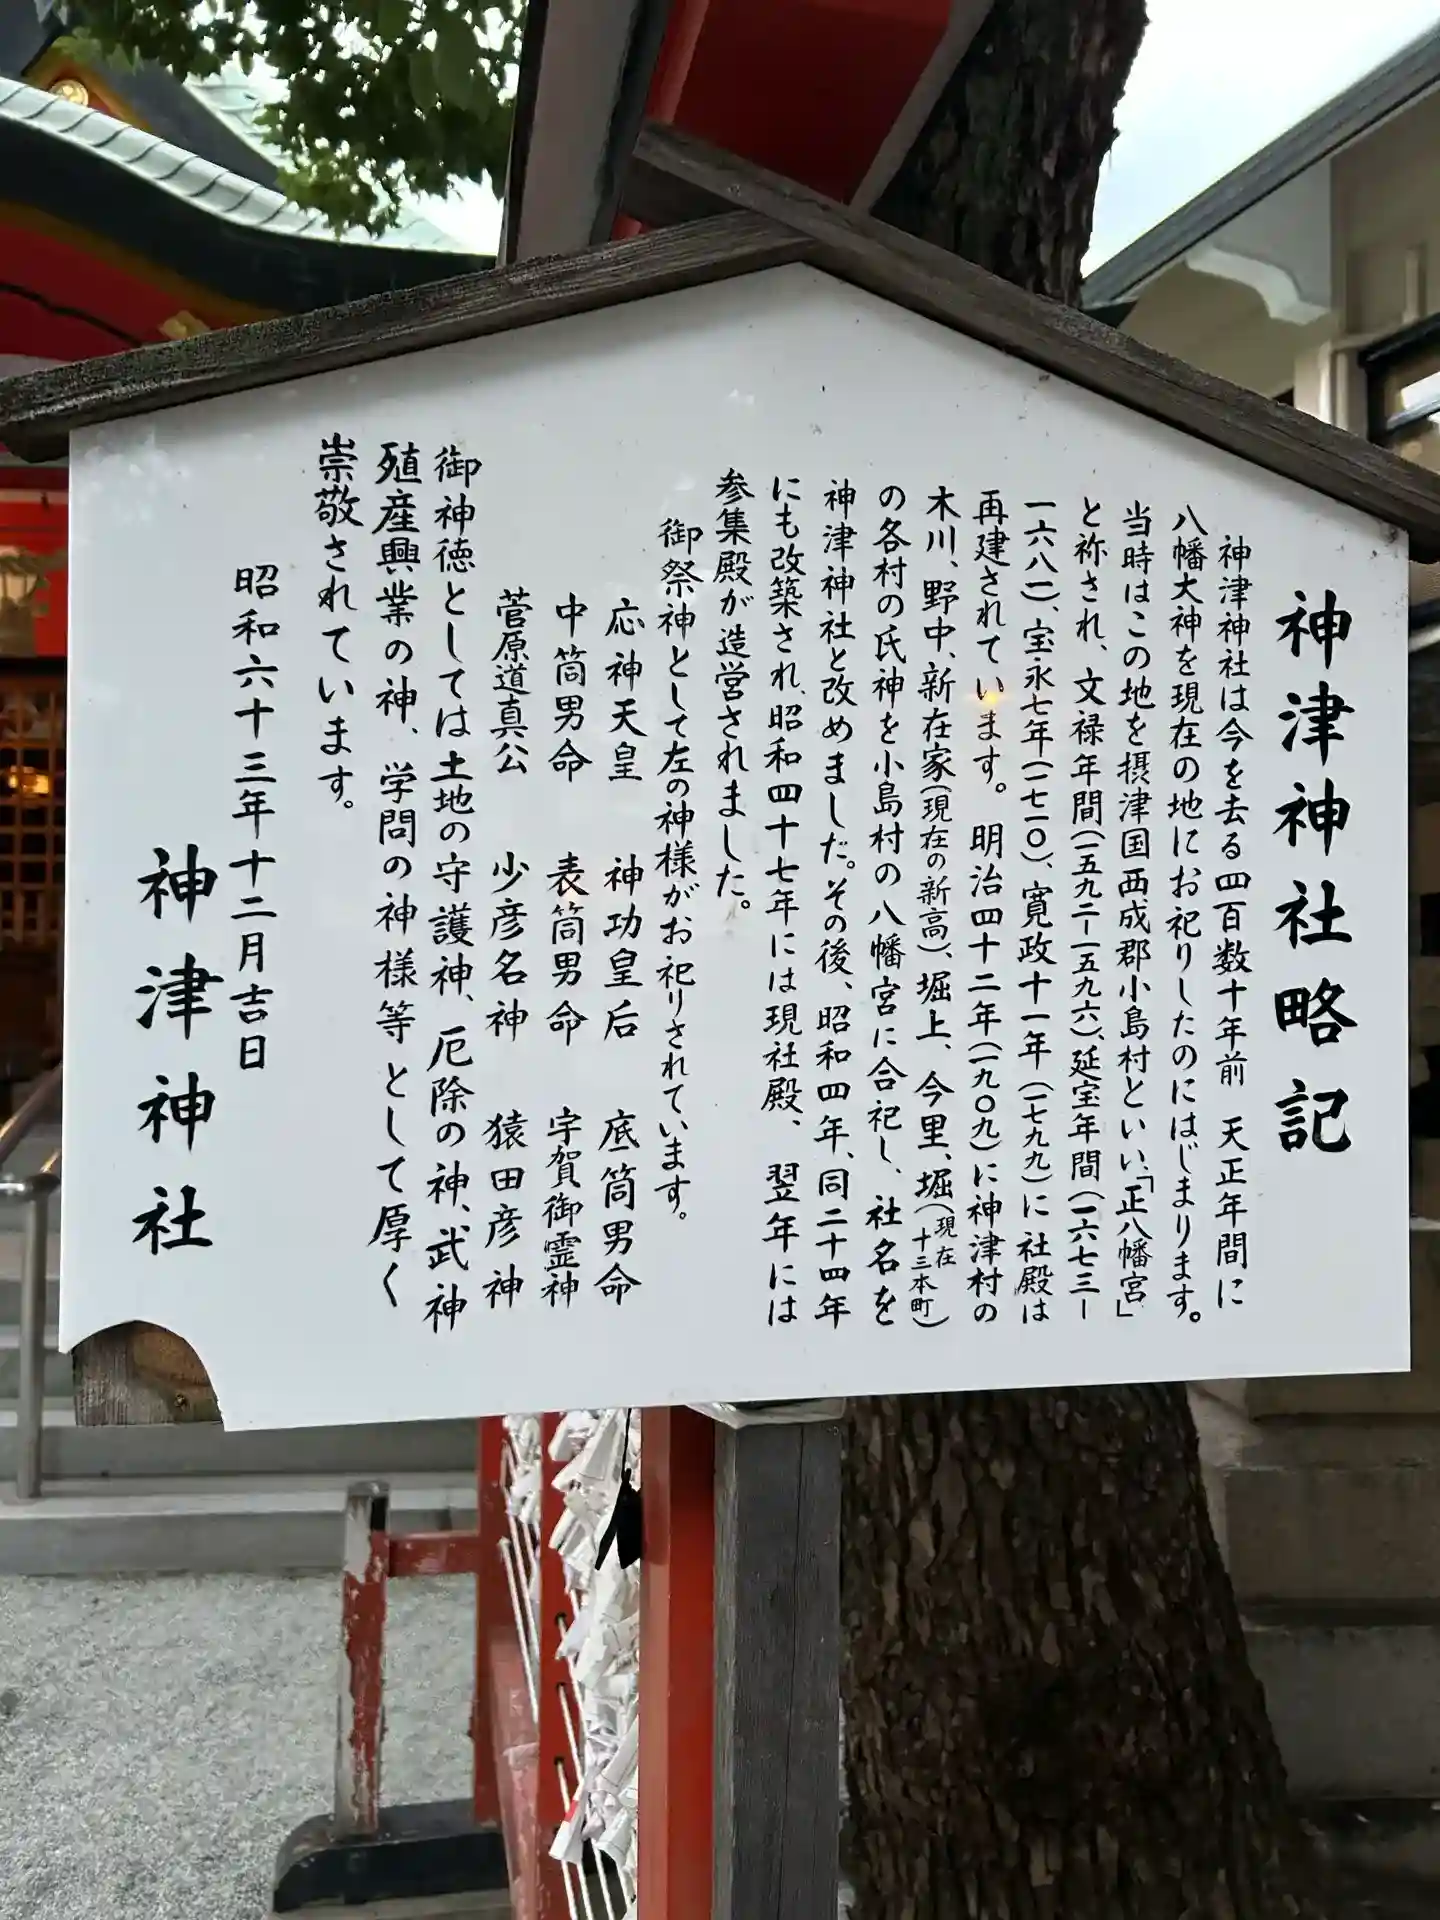 神津神社略記
神津神社は今を去る四百数十年前 天正年間に
八幡大神を現在の地にお祀りしたのにはじまります。
当時はこの地を摂津国西成郡小島村といい、「正八幡宮」
と祢され、文禄年間(一五九二ー一五九六)、延宝年間(一六七三ー
一六八一)、宝永七年(一七一〇)、寛政十一年(一七九九)に社殿は
再建されています。明治四十二年(一九〇九)に神津村の
木川、野中、新在家(現在の新高)、堀上、今里、堀(現在十三本町)
の各村の氏神を小島村の八幡宮に合祀し、社名を
神津神社と改めましだ。その後、昭和四年、同二十四年
にも改築され、昭和四十七年には現社殿、翌年には
参集殿が造営されました。
御祭神として左の神様がお祀りされています。
応神天皇 神功皇后 底筒男命
中筒男命 表筒男命 宇賀御霊神
菅原道真公 少彦名神 猿田彦神
御神徳としては土地の守護神、厄除の神、武神
殖産興業の神、学問の神様等として厚く
崇敬されています。
昭和六十三年十二月吉日
神津神社